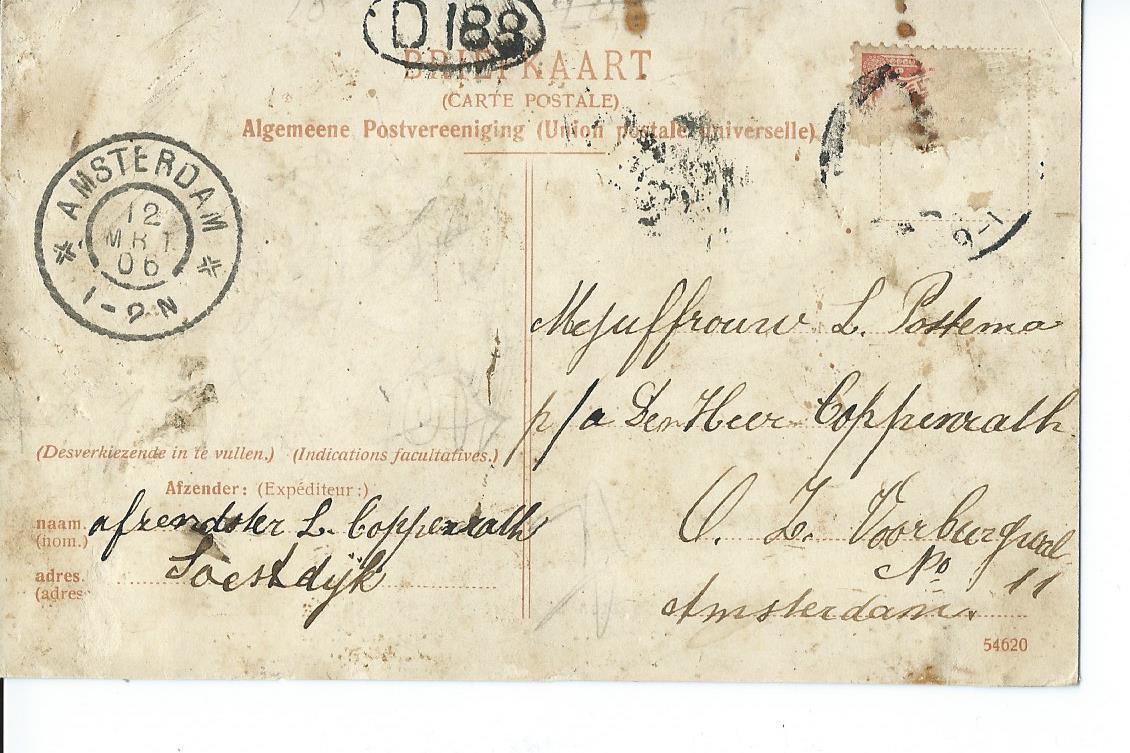 D 188
BRIEFKAART
(CARTE POSTALE)
Algemeene Postvereeniging (Union postale universelle)
AMSTERDAM
12
MRT
06
1-2N
Mejuffrouw L. Postema
p/a Den Heer Coppenrath
O. Z. Voorburgwal
No 11
Amsterdam.
(Desverkiezende in te vullen.) (Indications facultatives.)
Afzender: (Expéditeur:)
naam. afzendster L. Coppenrath
(nom.)
adres. Soestdijk
(adres
54620